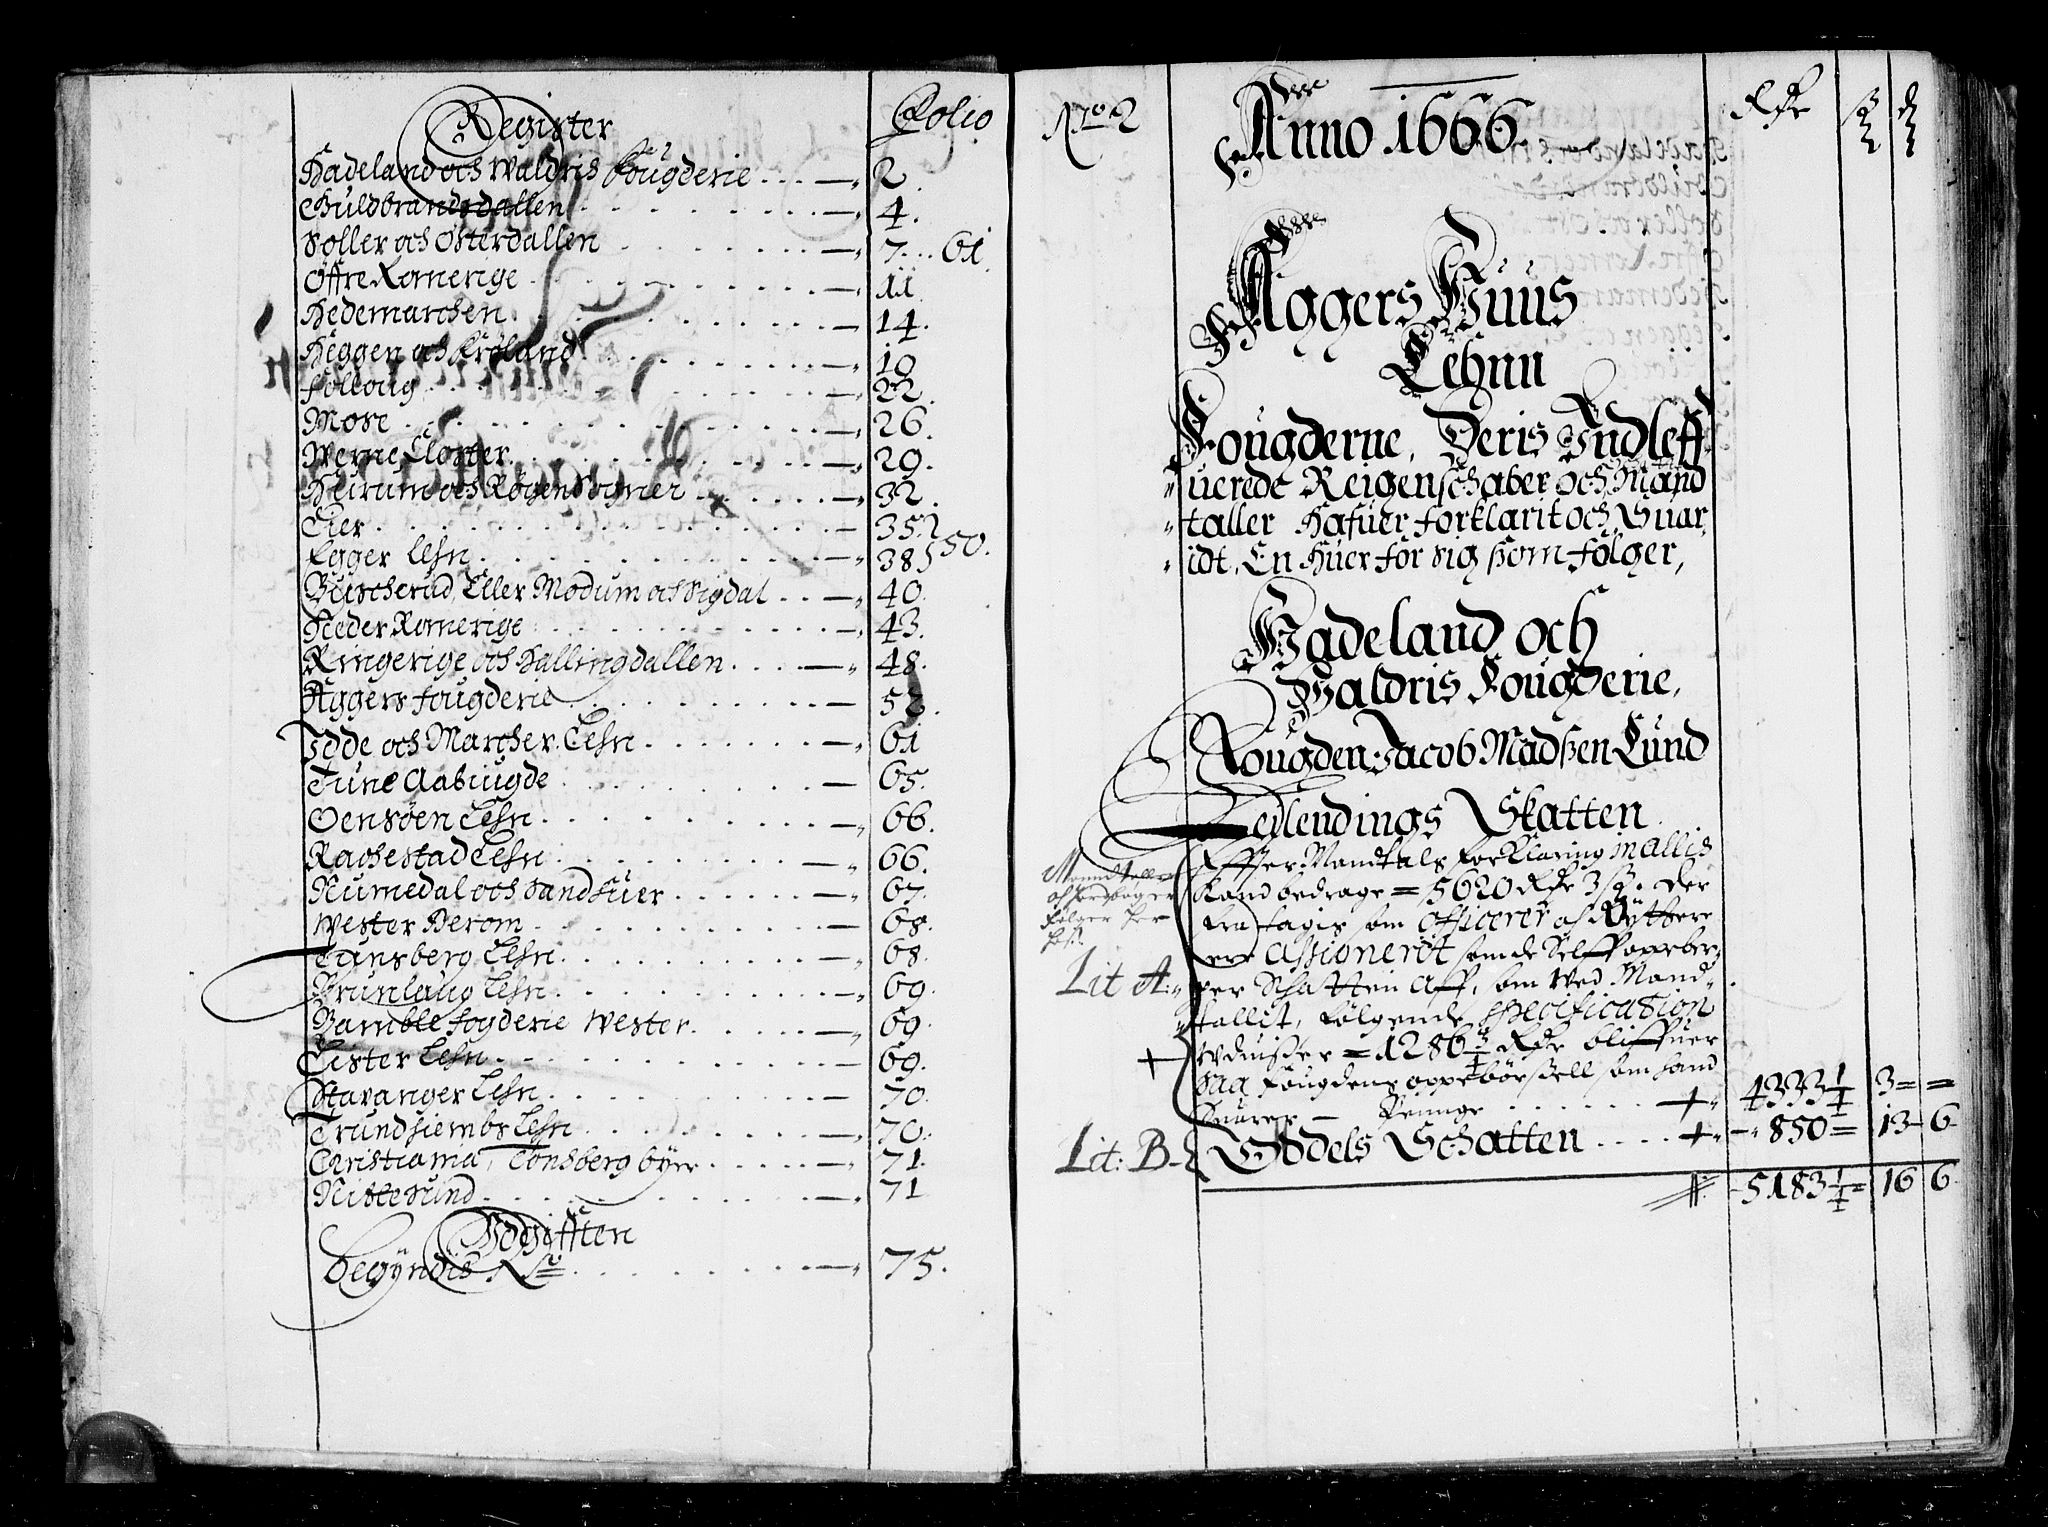 Register
Folio
Hadeland och Waldris fougderie 2
Guldbrandsdallen 4.
Soller och Østerdallen 7 61
Øffre Romerige 11
Hedemarchen 14.
Heggen och Frøland 19
Folloug 22.
Mose 26.
Werne Closter 29.
Hurum och Røgen Sogner 32.
Eier 35.
Egger Lehn 38 50.
Buscherud, Eller Modum och Sigdal 40.
Neder Romerige 43.
Ringerige och Hallingdallen 48.
Aggers fougderie 52.
Idde och Marcher Lehn 61
Tune Aabiugde 65.
Oensøen Lehn 66.
Rachestad Lehn 66.
Numedal och Sandsuer 67.
Wester Berom 68.
Tunsberg Lehn 68.
Brunlaug Lehn 69.
Bamble fogderie Wester 69.
Lister Lehn 69.
Stavanger Lehn 70.
Trundhiembs Lehn 70.
Christiania, Tonsberg byer 71.
Nittesund 71
Vdgifften
begyndis 75.
No 2
Anno 1666.
Aggers Huus
Lehnn
Fougderne, Deris Indleff
uerede Reigenschaber och Mand
taller Hafuer forklarit och Suar
idt, En Huer for sig som følger,
Hadeland och
Waldris Fougderie,
Fougden Jacob Madßen Lund
Ledlendings Skatten
Effter Mandtals forklaring in allis
Kand bedrage = 5620 Rdr 3 ß. Der
fra tagis som officerer och Ryttere
er Assionerdt som de Self oppeber
ger Schatten aff, som wed Mand
tallit, følgende specification
= 1286 Rdr bliffuer
saa fougdens oppebørßell som hand
Suarer Penge 4333 3
Lit A:
Lit: B Oddels Schatten 850 13 6
5183 16 6